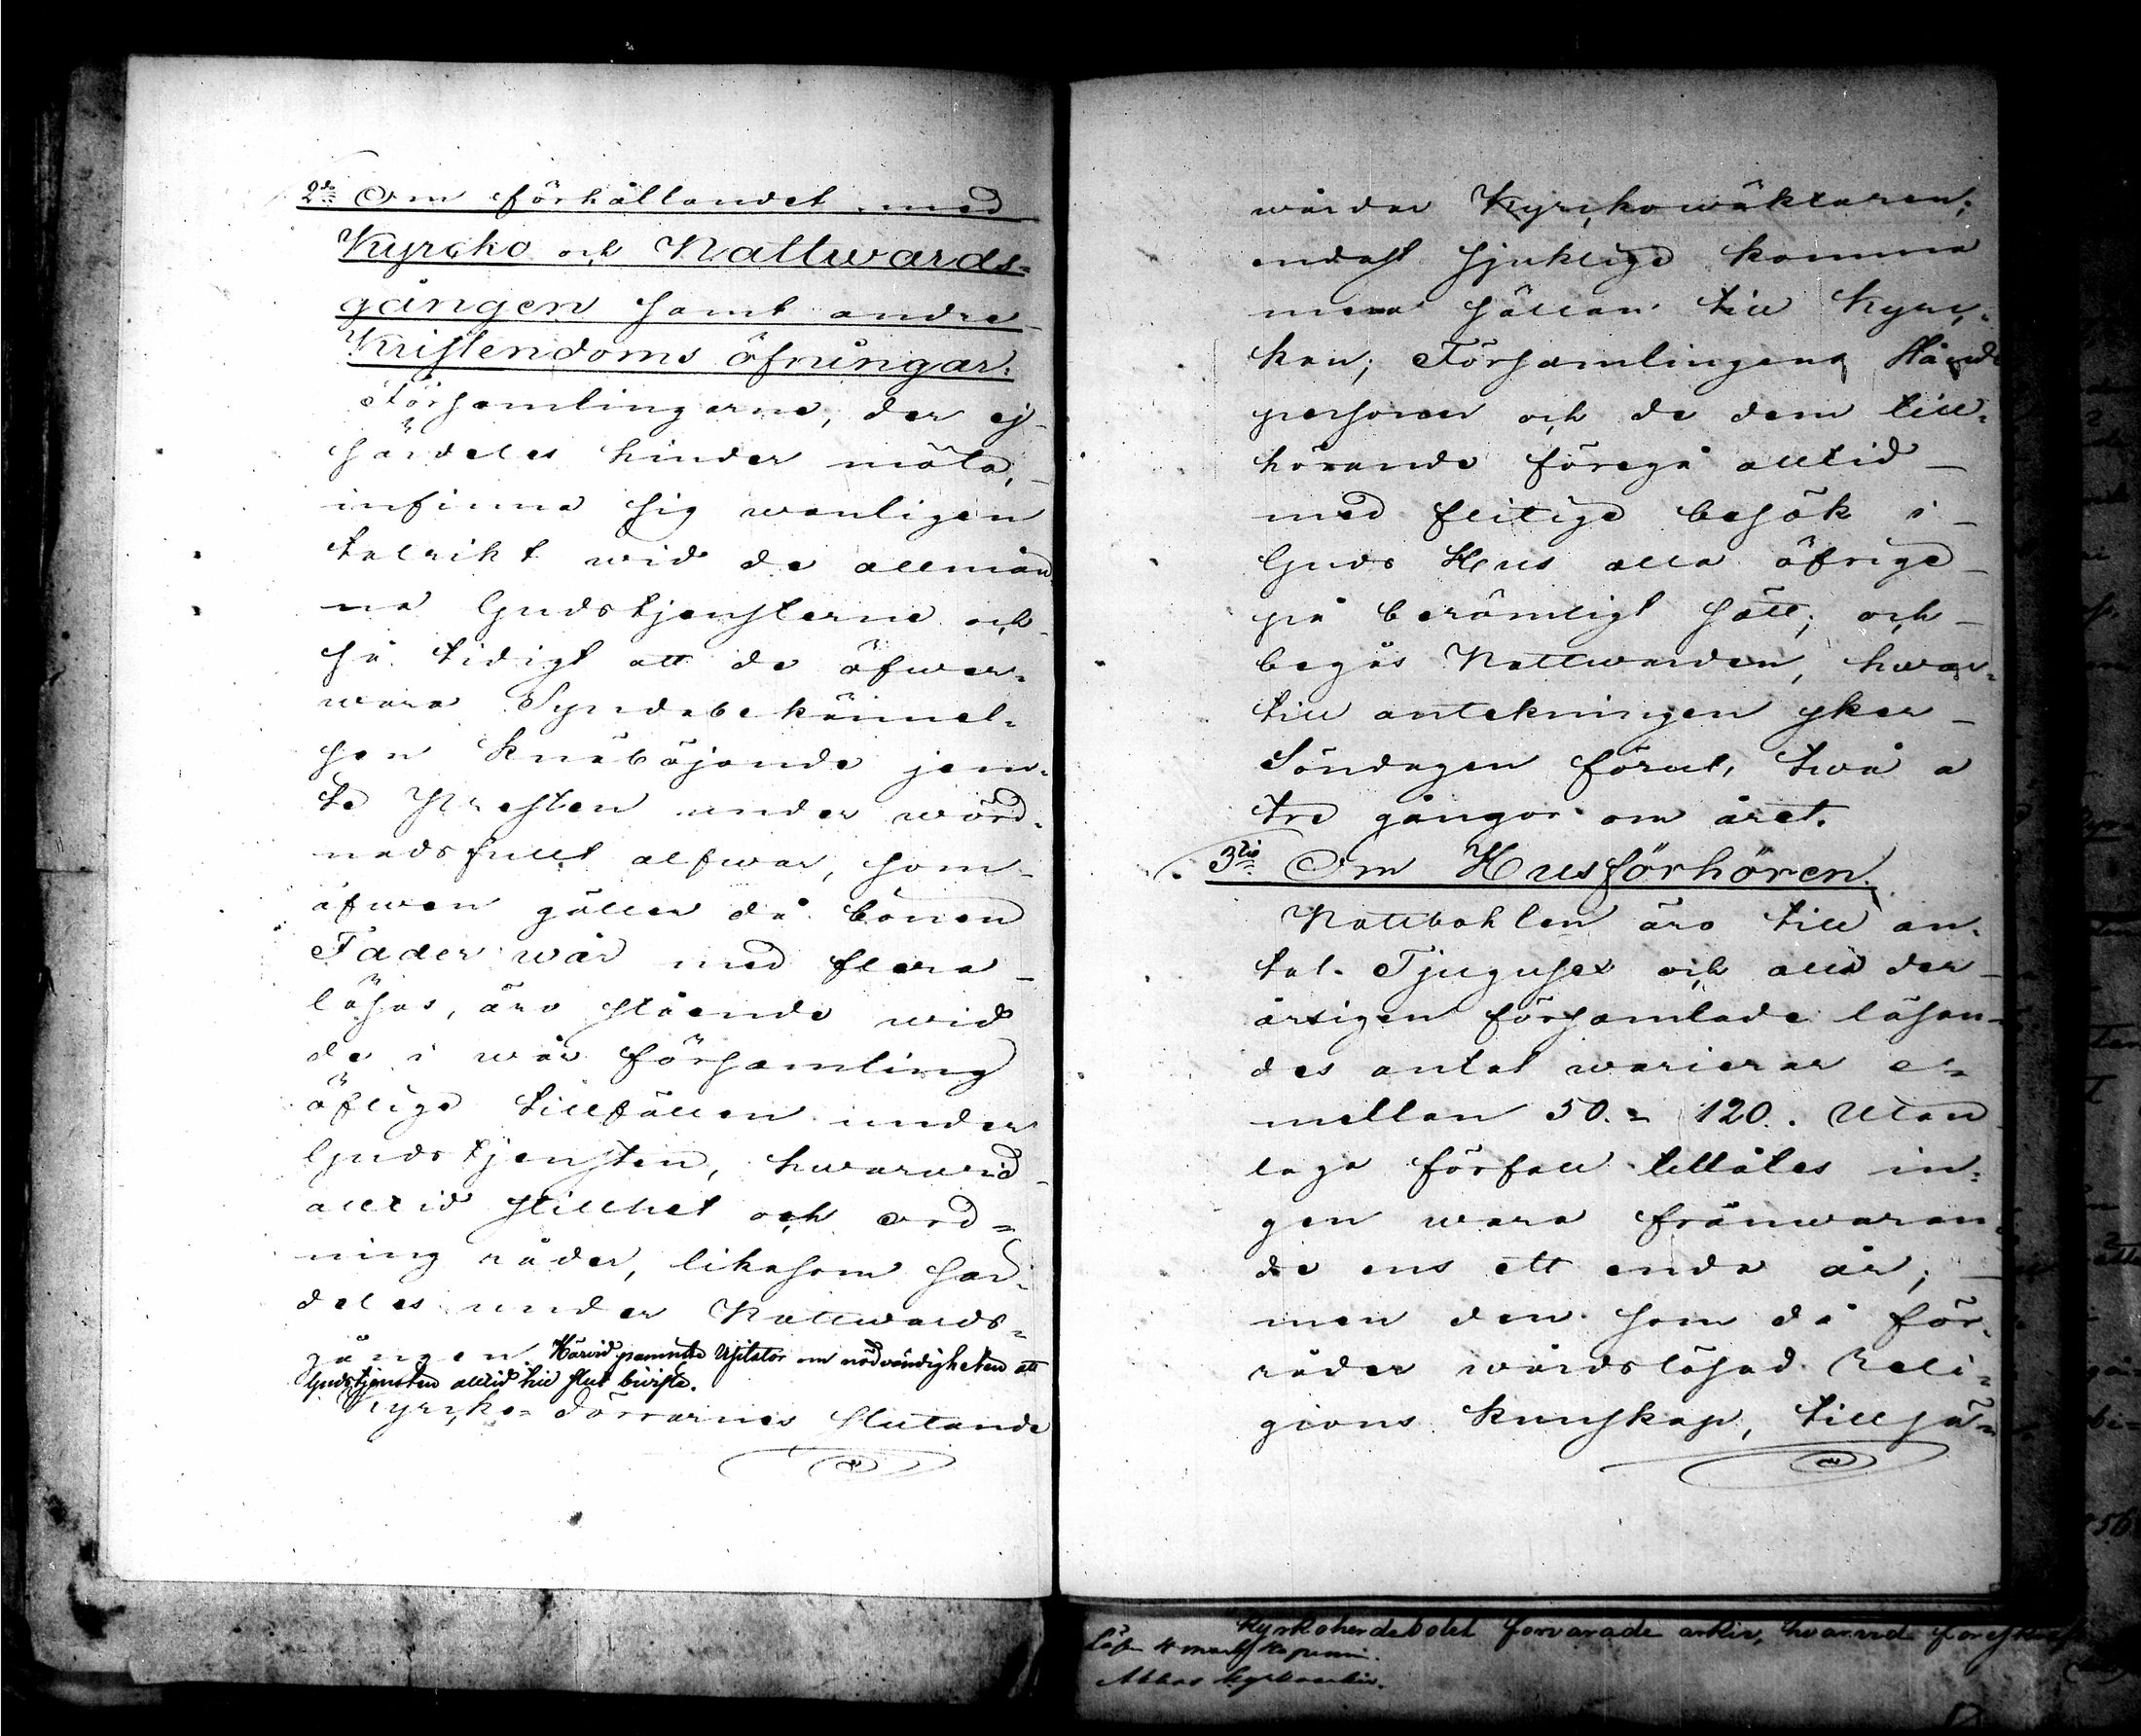 2do Om förhållandet med
Kyrcko och Nattwards-
gången samt andre
Kristendoms öfningar.
Församlingarne, der ej
särdeles hinder möta,
infinna sig wanligen
talrikt wid de allmän
na Gudstjensterne och
så tidigt att de öfwer-
wara Syndabekännel-
sen knäböjande jem-
te Presten under wörd-
nadsfullt alfwar, som
äfwen gäller då bönen
Fader wår med flera
läsas, äro stående wid
de i wår församling
öflige tillfällen under
Gudstjensten, hwarwid
alltid stillhet och ord-
ning råder, likasom sär-
deles under Nattwards-
gången. Härvid påminte Visitator om nödvändigheten att
Gudstjensten alltid till slut bivista.
Kyrcko-dörrarnes slutande
wårdar Kyrckowäktaren;
endast sjuklige komma
mera sällan till Kyrc-
kan; Församlingens Stånds
personer och de dem till-
hörande föregå alltid
med flitige besök i
Guds Hus alla öfrige
på berömligt sätt; och
begås Nattwarden, hwar-
till antekningen sker
Söndagen förut, twå a
tre gånger om året.
3tio Om Husförhören.
Nattbohlen äro till an-
tal Tjugusex och alla der
årligen församlade läsan-
des antal warierar e-
mellan 50.- 120. Utan
laga förfall tillåtes in-
gen wara frånwaran-
de ens ett enda år;
men den som då för-
råder wårdslösad Reli-
gions kunskap, tillsä-
Kyrkoherdebolet förvarade arkiv, hvarvid